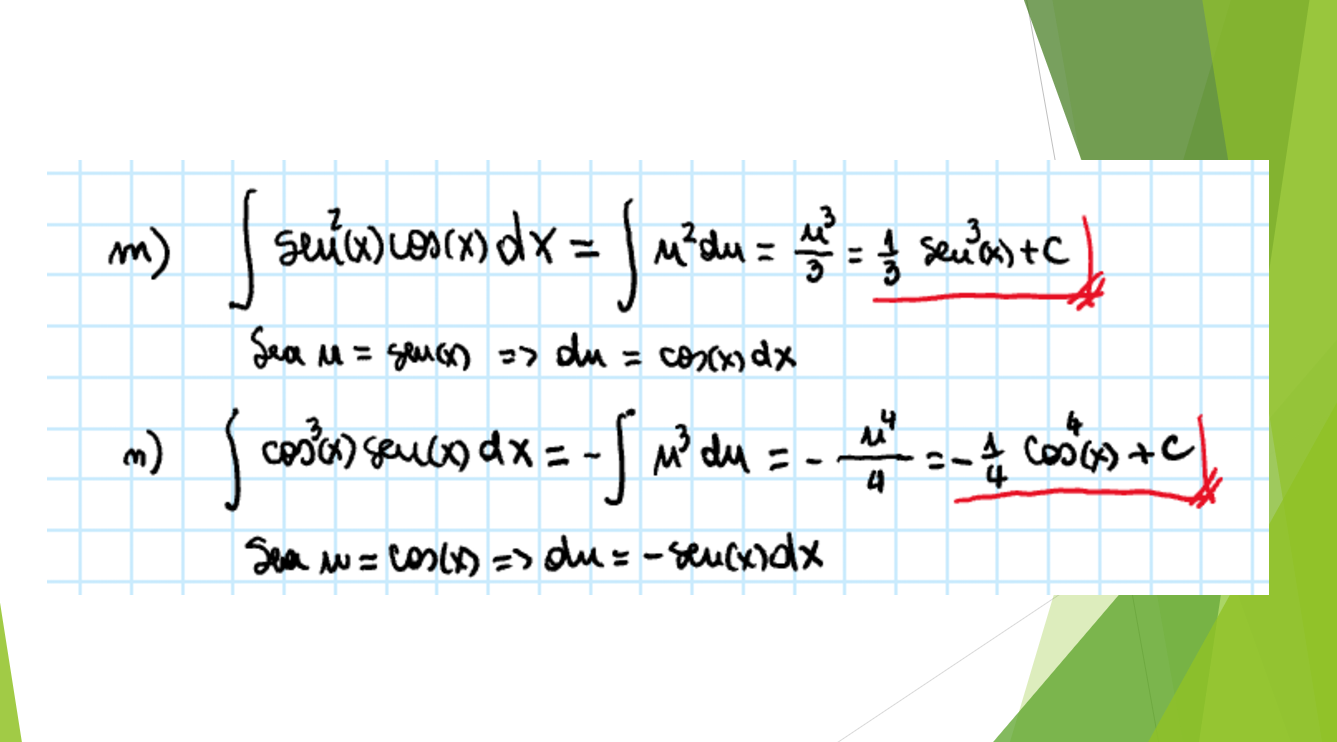 m) ∫ sen²(x) cos(x) dx = ∫ u² du = u³/3 = 1/3 sen³(x) + C
Sea u = sen(x) => du = cos(x) dx
n) ∫ cos³(x) sen(x) dx = - ∫ u³ du = - u⁴/4 = - 1/4 cos⁴(x) + C
Sea u = cos(x) => du = - sen(x) dx